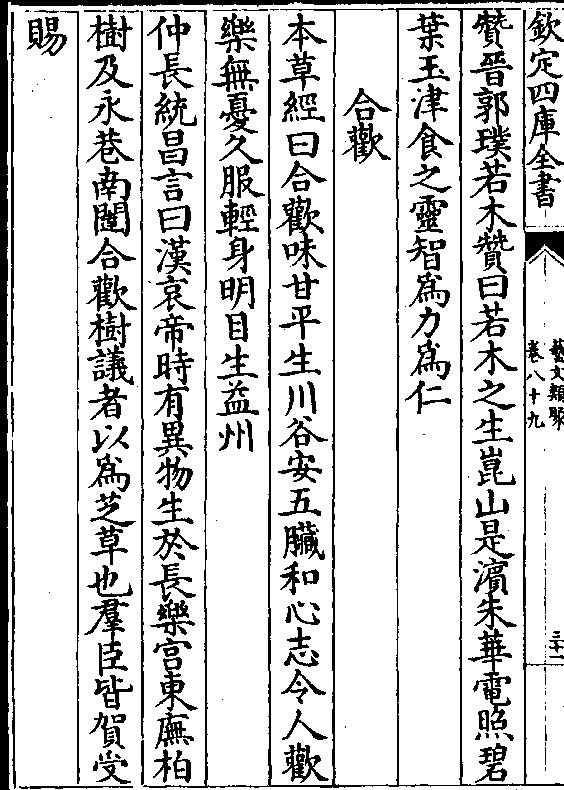 欽定四庫全書
藝文類聚
卷八十九
三十一
贊晉郭璞若木贊曰若木之生崑山是濱朱華電照碧
葉玉津食之靈智為力為仁
合歡
本草經曰合歡味甘平生川谷安五臟和心志令人歡
樂無憂久服輕身明目生益州
仲長統昌言曰漢哀帝時有異物生於長樂宮東廡柏
樹及永巷南闥合歡樹議者以為芝草也羣臣皆賀受
賜